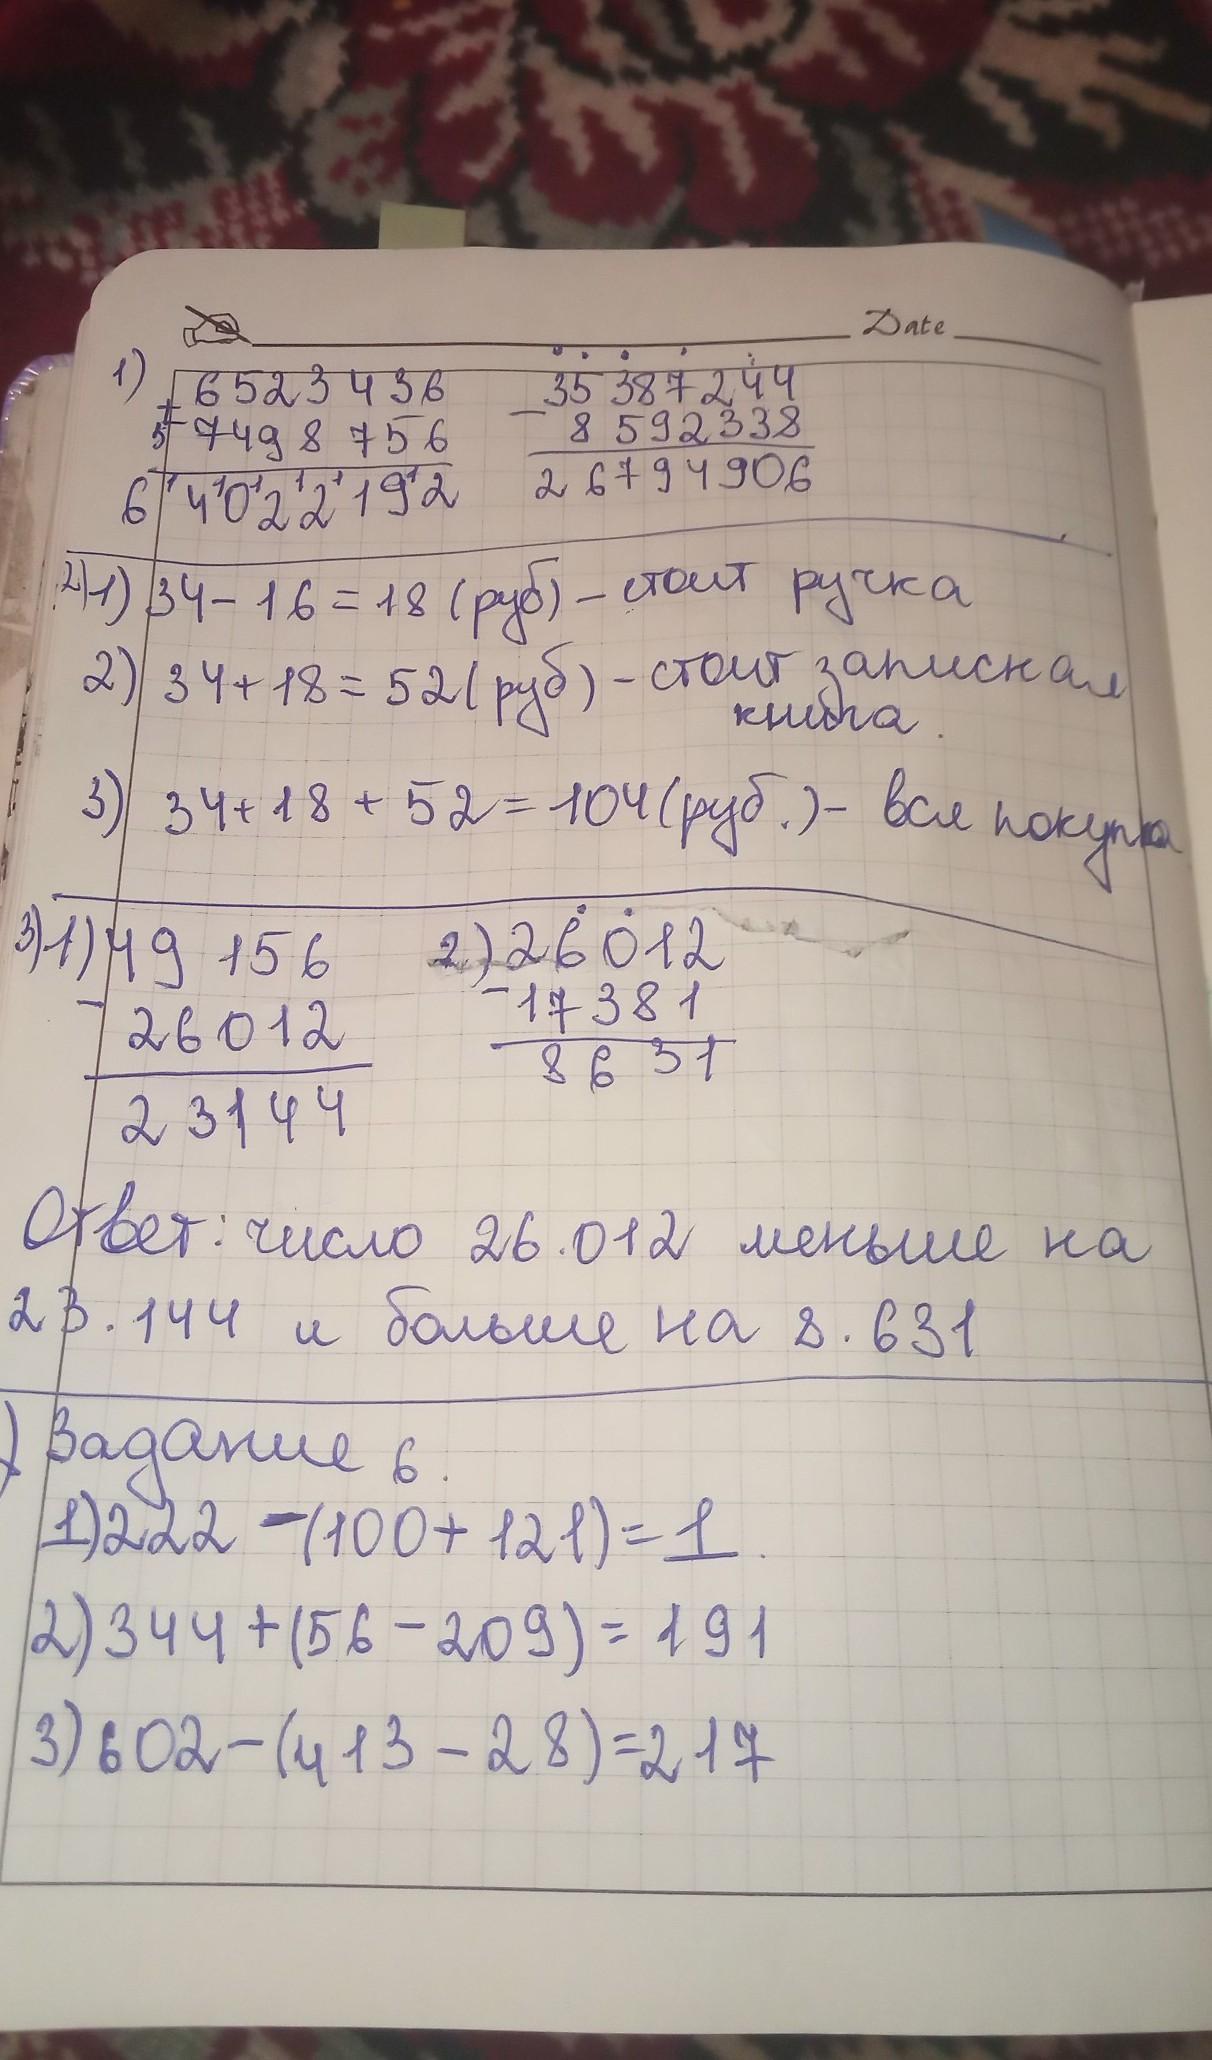 Date
1) 6523436 35387244
+ 57498756 - 8592338
64022192 26794906
2) 1) 34 - 16 = 18 (руб) - стоит ручка
2) 34 + 18 = 52 (руб) - стоит записная
книга.
3) 34 + 18 + 52 = 104 (руб.) - вся покупка
3) 1) 49 156 2) 26012
- 26012 - 17381
23144 8631
Ответ: число 26.012 меньше на
23.144 и больше на 8.631
) Задание 6.
1) 222 - (100 + 121) = 1.
2) 344 + (56 - 209) = 191
3) 602 - (413 - 28) = 217